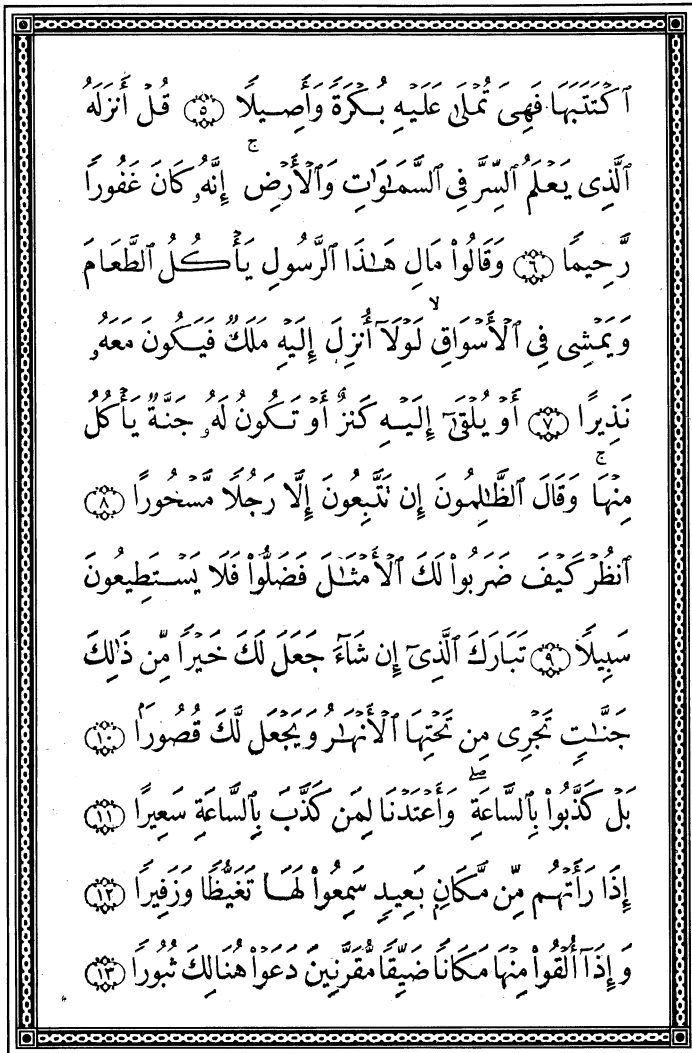 ٱكْتَتَبَهَا فَهِىَ تُمْلَىٰ عَلَيْهِ بُكْرَةً وَأَصِيلًا ۝٥ قُلْ أَنزَلَهُ
ٱلَّذِى يَعْلَمُ ٱلسِّرَّ فِى ٱلسَّمَٰوَٰتِ وَٱلْأَرْضِ ۚ إِنَّهُۥ كَانَ غَفُورًا
رَّحِيمًا ۝٦ وَقَالُوا۟ مَالِ هَٰذَا ٱلرَّسُولِ يَأْكُلُ ٱلطَّعَامَ
وَيَمْشِى فِى ٱلْأَسْوَاقِ ۙ لَوْلَآ أُنزِلَ إِلَيْهِ مَلَكٌ فَيَكُونَ مَعَهُۥ
نَذِيرًا ۝٧ أَوْ يُلْقَىٰٓ إِلَيْهِ كَنزٌ أَوْ تَكُونُ لَهُۥ جَنَّةٌ يَأْكُلُ
مِنْهَا ۚ وَقَالَ ٱلظَّٰلِمُونَ إِن تَتَّبِعُونَ إِلَّا رَجُلًا مَّسْحُورًا ۝٨
ٱنظُرْ كَيْفَ ضَرَبُوا۟ لَكَ ٱلْأَمْثَٰلَ فَضَلُّوا۟ فَلَا يَسْتَطِيعُونَ
سَبِيلًا ۝٩ تَبَارَكَ ٱلَّذِىٓ إِن شَآءَ جَعَلَ لَكَ خَيْرًا مِّن ذَٰلِكَ
جَنَّٰتٍ تَجْرِى مِن تَحْتِهَا ٱلْأَنْهَٰرُ وَيَجْعَل لَّكَ قُصُورًۢا ۝١٠
بَلْ كَذَّبُوا۟ بِٱلسَّاعَةِ ۖ وَأَعْتَدْنَا لِمَن كَذَّبَ بِٱلسَّاعَةِ سَعِيرًا ۝١١
إِذَا رَأَتْهُم مِّن مَّكَانٍۭ بَعِيدٍ سَمِعُوا۟ لَهَا تَغَيُّظًا وَزَفِيرًا ۝١٢
وَإِذَآ أُلْقُوا۟ مِنْهَا مَكَانًا ضَيِّقًا مُّقَرَّنِينَ دَعَوْا۟ هُنَالِكَ ثُبُورًا ۝١٣